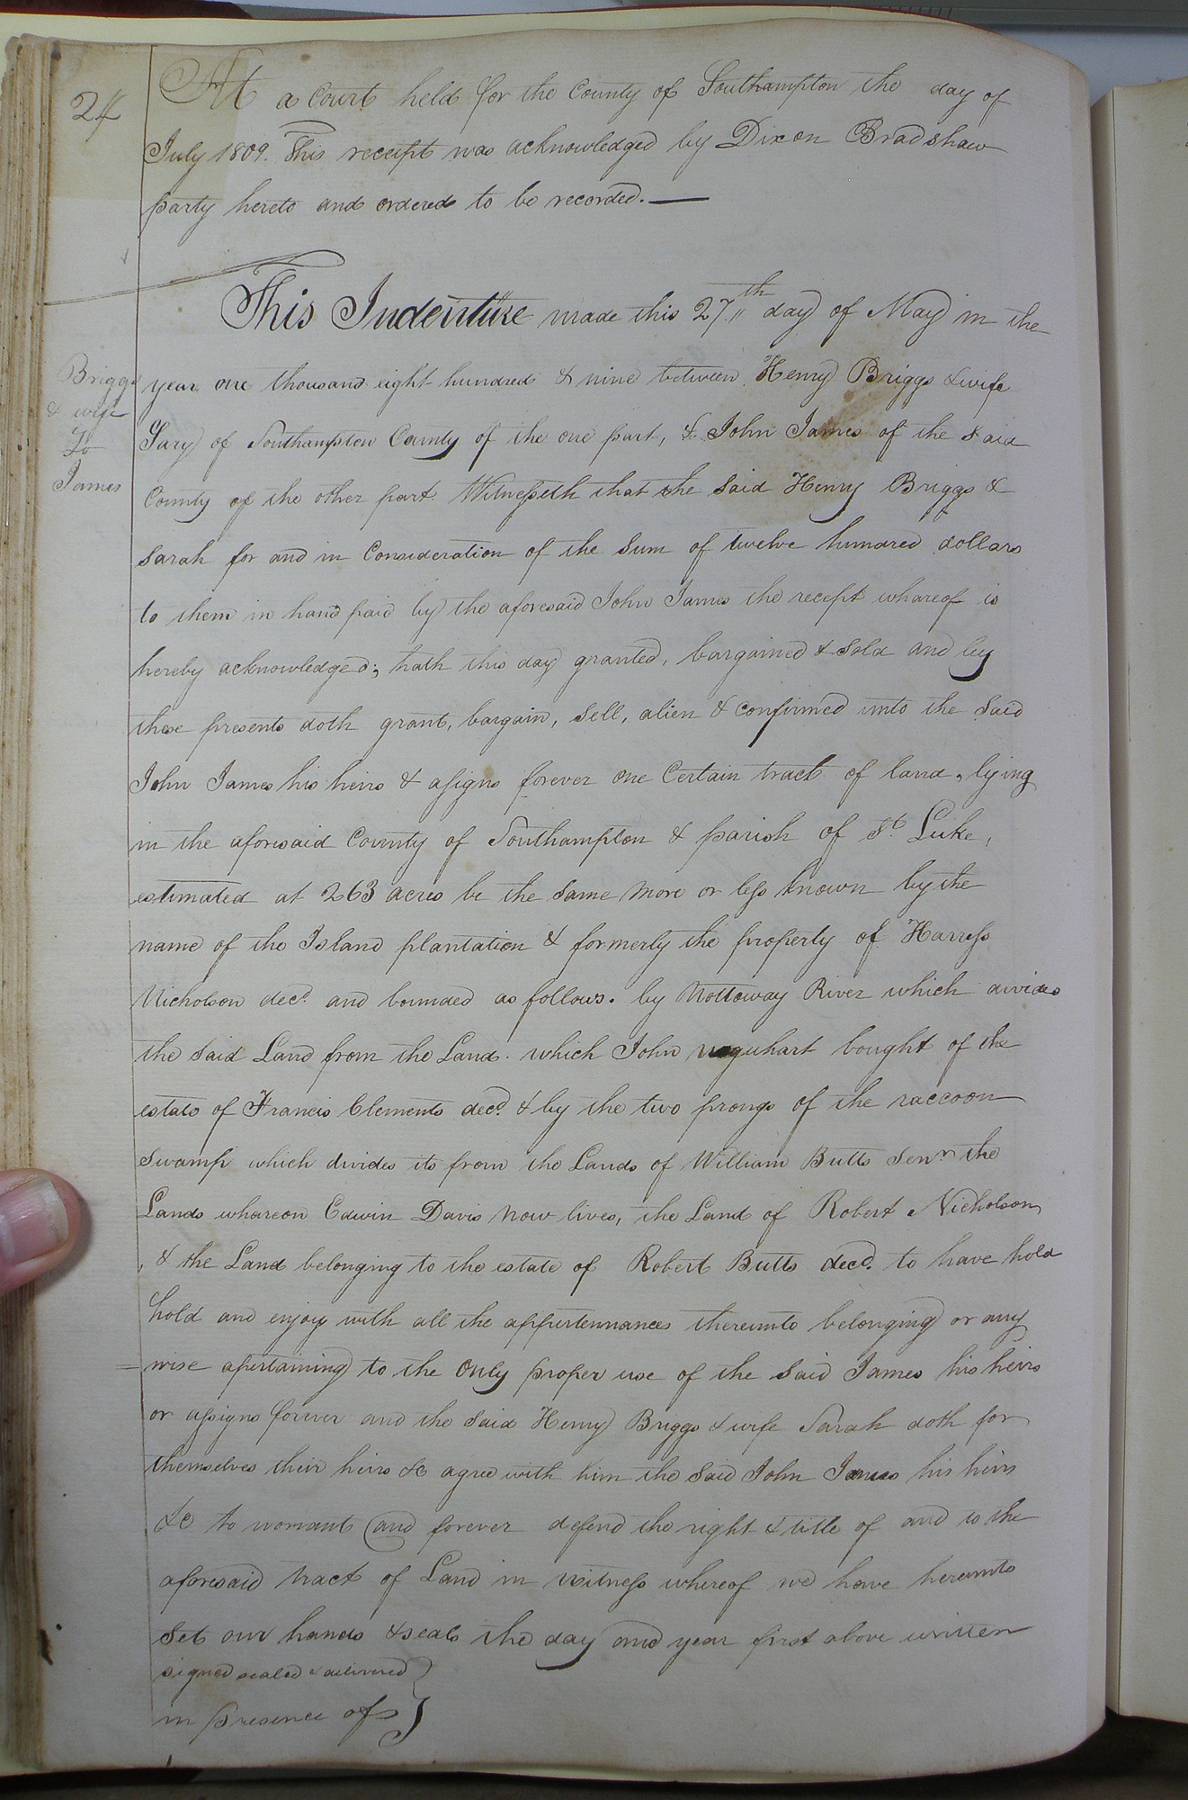 24
At a Court held for the County of Southampton the day of
July 1809. This receipt was acknowledged by Dixon Bradshaw
party hereto and ordered to be recorded. —
This Indenture made this 27th day of May in the
Briggs
& wife
To
James
year one thousand eight hundred & nine between Henry Briggs & wife
Sary of Southampton County of the one part, & John James of the said
County of the other part Witnesseth that the said Henry Briggs &
Sarah for and in Consideration of the Sum of twelve hundred dollars
to them in hand paid by the aforesaid John James the recept whareof is
hereby acknowledged; hath this day granted, bargained & Sold and by
these presents doth grant, bargain, Sell, alien & confirmed unto the Said
John James his heirs & asigns forever one Certain tract of land, lying
in the aforesaid County of Southampton & parish of St. Luke,
estimated at 263 acres be the same more or less known by the
name of the Island plantation & formerly the property of Harress
Nicholson decd. and bounded as follows. by Nottoway River which divides
the said Land from the Land which John Urquhart bought of the
estate of Francis Clements decd. & by the two prongs of the raccoon
Swamp which divides its from the Lands of William Butts Senr. the
Lands whareon Edwin Davis now lives, the Land of Robert Nicholson
, & the Land belonging to the estate of Robert Butts decd. to have hold
hold and enjoy with all the appurtennances thereunto belonging or any
= wise apertaining to the only proper use of the said James his heirs
or assigns forever and the said Henry Briggs & wife Sarah doth for
themselves their heirs &c agree with him the Said John James his heirs
&c to warrant and forever defend the right & title of and to the
aforesaid tract of Land in witness whereof we have hereunto
Set our hands & seals the day and year first above written
signed sealed & delivered }
in presence of }